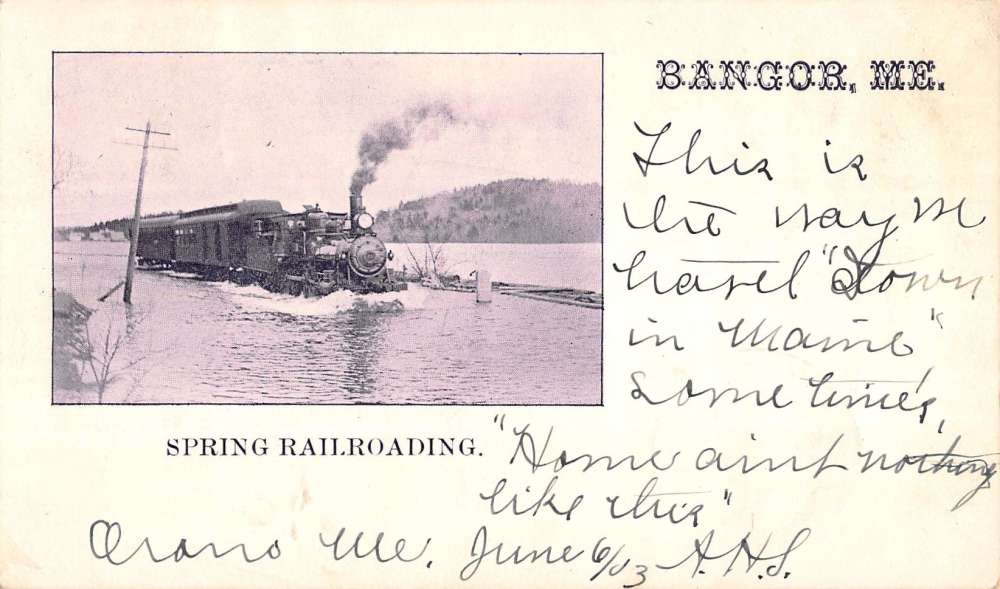 BANGOR, ME.
This is
the way we
travel "Down
in Maine"
sometimes,
SPRING RAILROADING.
"Home aint nothing
like this"
Orono Me. June 6/03 A.H.S.